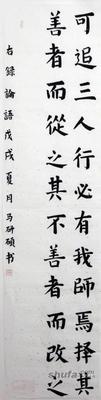 可追三人行必有我師焉擇其
善者而從之其不善者而改之
右錄論語戊戌夏月马研碩書